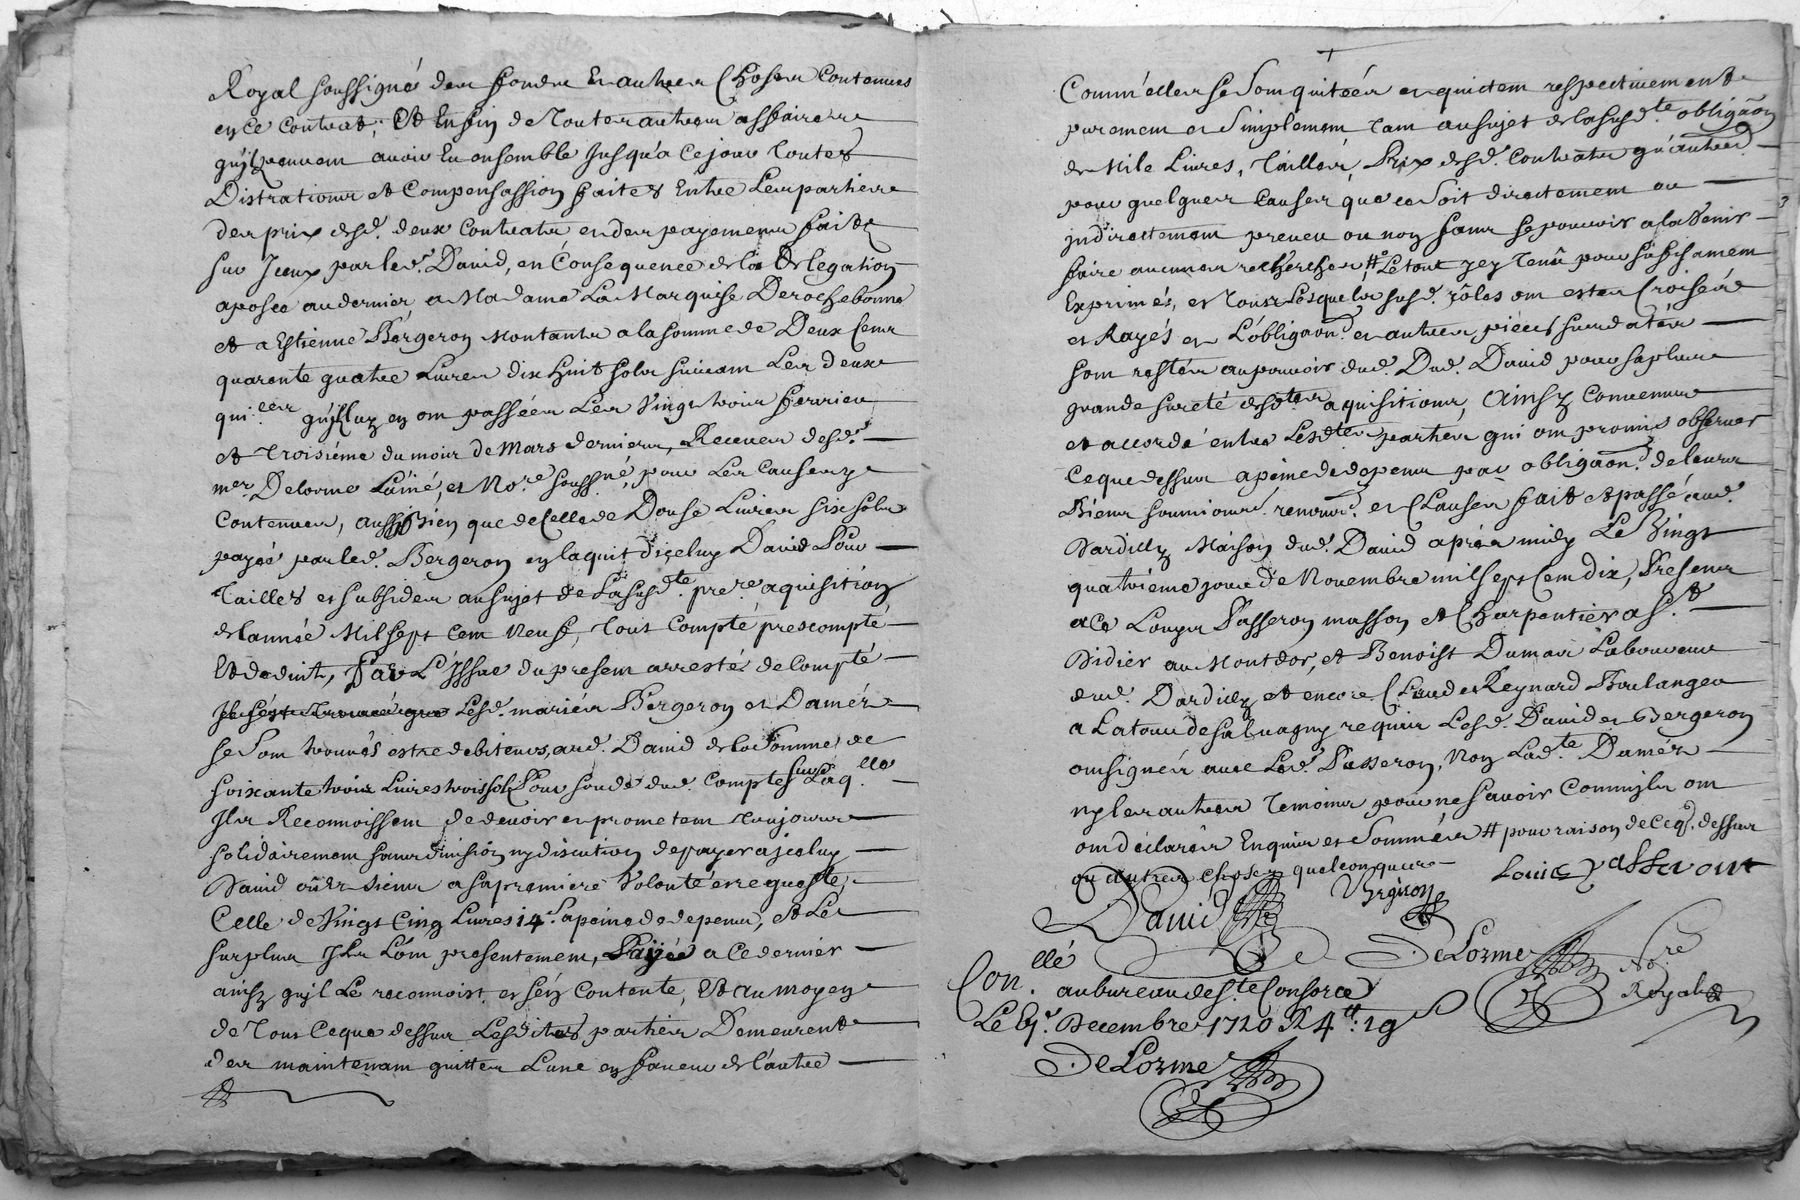 Royal soussigné des fonds et autres choses contenues
en ce contrat; Et Enfin de Toutes autres affaires
qu'ils peuvent avoir Eu ensemble Jusqu'a Ce jour Toutes
Distrations et Compensassion faites Entre Les parties
des prix desd. deux Contrats et des payemens faits
sur Iceux par led. David, en Consequence de la Delegation
aposée au dernier a Madame La Marquise Derochebonne
et a Estienne Bergeron Montants a la somme de Deux Cens
quarente quatre Livres dix huit sols suivant Les deux
qui.ces qu'ils luy en ont passées Les Vingt trois fevrier
et Troisiéme du mois de Mars derniers, Receues desd.
mer. Delorme L'ainé, et No.re souss.né, pour Les Causes y
Contenues, aussy bien que de Celle de Douse Livres six sols
payés par led. Bergeron en l'aquit d'iceluy David Pour
Tailles et subsides au sujet de La susd.te pre.re aquisition
de l'année Mil sept Cent Neuf, Tout Compté prescompté
Et deduit, Par L'Issue du present arresté de Compte
Lesd. mariés Bergeron et Damér
se sont trouvés estre debiteurs, aud. David de la Somme de
soixante trois Livres trois sols Pour soude dud. Compte sur Laq.lle
Ils Reconnoissent de devoir et prometent Toujours
solidairement sans division ny discution de payer a iceluy
David ou és siens a sa premiere Volonté et requeste,
Celle de Vingt Cinq Livres 14 s. a peine de depens, Et Le
surplus Ils L'ont presentement, Payée a Ce dernier
ainsy qu'il Le reconnoist et s'en Contente, Et au moyen
de Tout Ceque dessus Lesdites parties Demeurent
des maintenant quittes L'une en faveur de L'autre
Comm'elles se sont quitées et quictent respectivement
purement et simplement Tant au sujet de la susd.te obligaon
de Mile Livres, Tailles, Prix desd. Contrats qu'autres
pour quelques Causes que ce soit directement ou
indirectement preveu ou non sans se pouvoir a la Venir
faire aucunes recherches # Le tout y ey Tenû pour sufisament
Exprimés, et Tous Lesquels susd. rôles ont estés Croisés
et Rayés et L'obligaon et autres piéces susdatées
sont restées au pouvoir dud. Dud. David pour sa plus
grande sureté desd.tes aquisitions, Ainsy Convenu
et accordé entre Lesd.tes parties qui ont promis observer
Ceque dessus a peine de depens par obligaon de leurs
Biens soumions. renonc. et Clauses fait et passé aud.
Dardilly Maison dud. David aprés midy Le Vingt
quatriéme jour de Novembre mil sept Cent dix, Presens
a Ce Louys Passeron masson et Charpentier a S.t
Didier au Montdor, et Benoist Dumas Laboureur
dud. Dardilly et encore Claude Reynard Boulanger
a La tour de salvagny requis Lesd. David et Bergeron
ont signés avec Led. Passeron, Non Lad.te Damér
ny les autres Temoins pour ne savoir Comm'ils ont
ont déclarés Enquis et Sommés # pour raison de Ceq. dessus
ou autres choses quelconques
David Bergiron Louis Passeront
DeLorme No.re
Royal
Con.llé au bureau de S.te Consorce
Le Decembre 1710 R 4 tt: 19 s
DeLorme